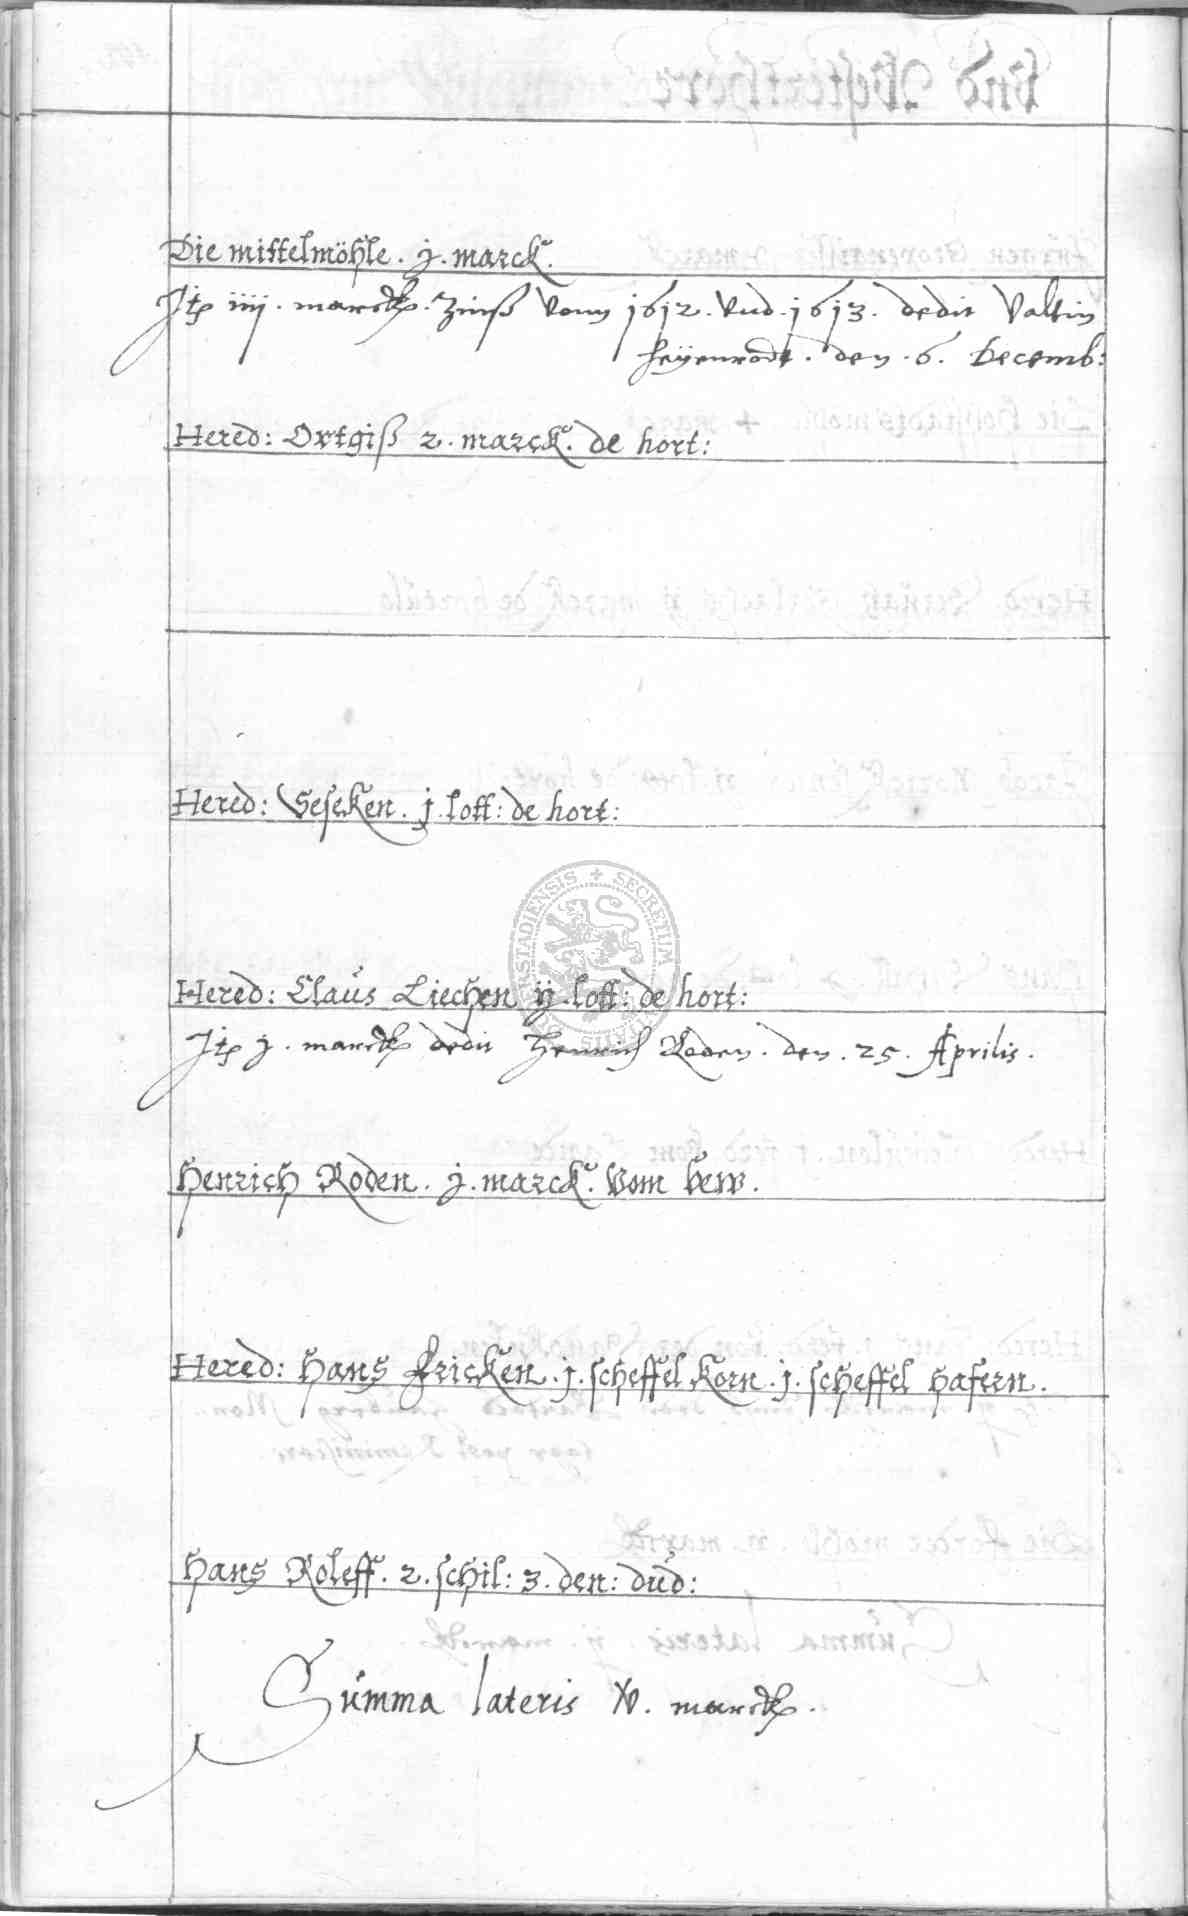 Die mittelmöhle . j . marck.
Itꝫ iiij . marck . Zinß Vonn 1612 . Vnd . 1613 . dedit Valtin
Heyenrodt . den . 6 . Decemb:
Hered: Ortgiß 2 . marck . de hort:
Hered: Veseken . j . lott: de hort:
Hered: Claus Liechen ij . lott: de hort:
Itꝫ j . marck dedit Henrich Roden . den . 25 . Aprilis .
Henrich Roden . j . marck . Vom hew .
Hered: Hans Fricken . j . scheffel Korn . j . scheffel hafern .
Hans Roleff . 2 . schil: 3 . den: dud:
Summa lateris V . marck .
SECRETUM